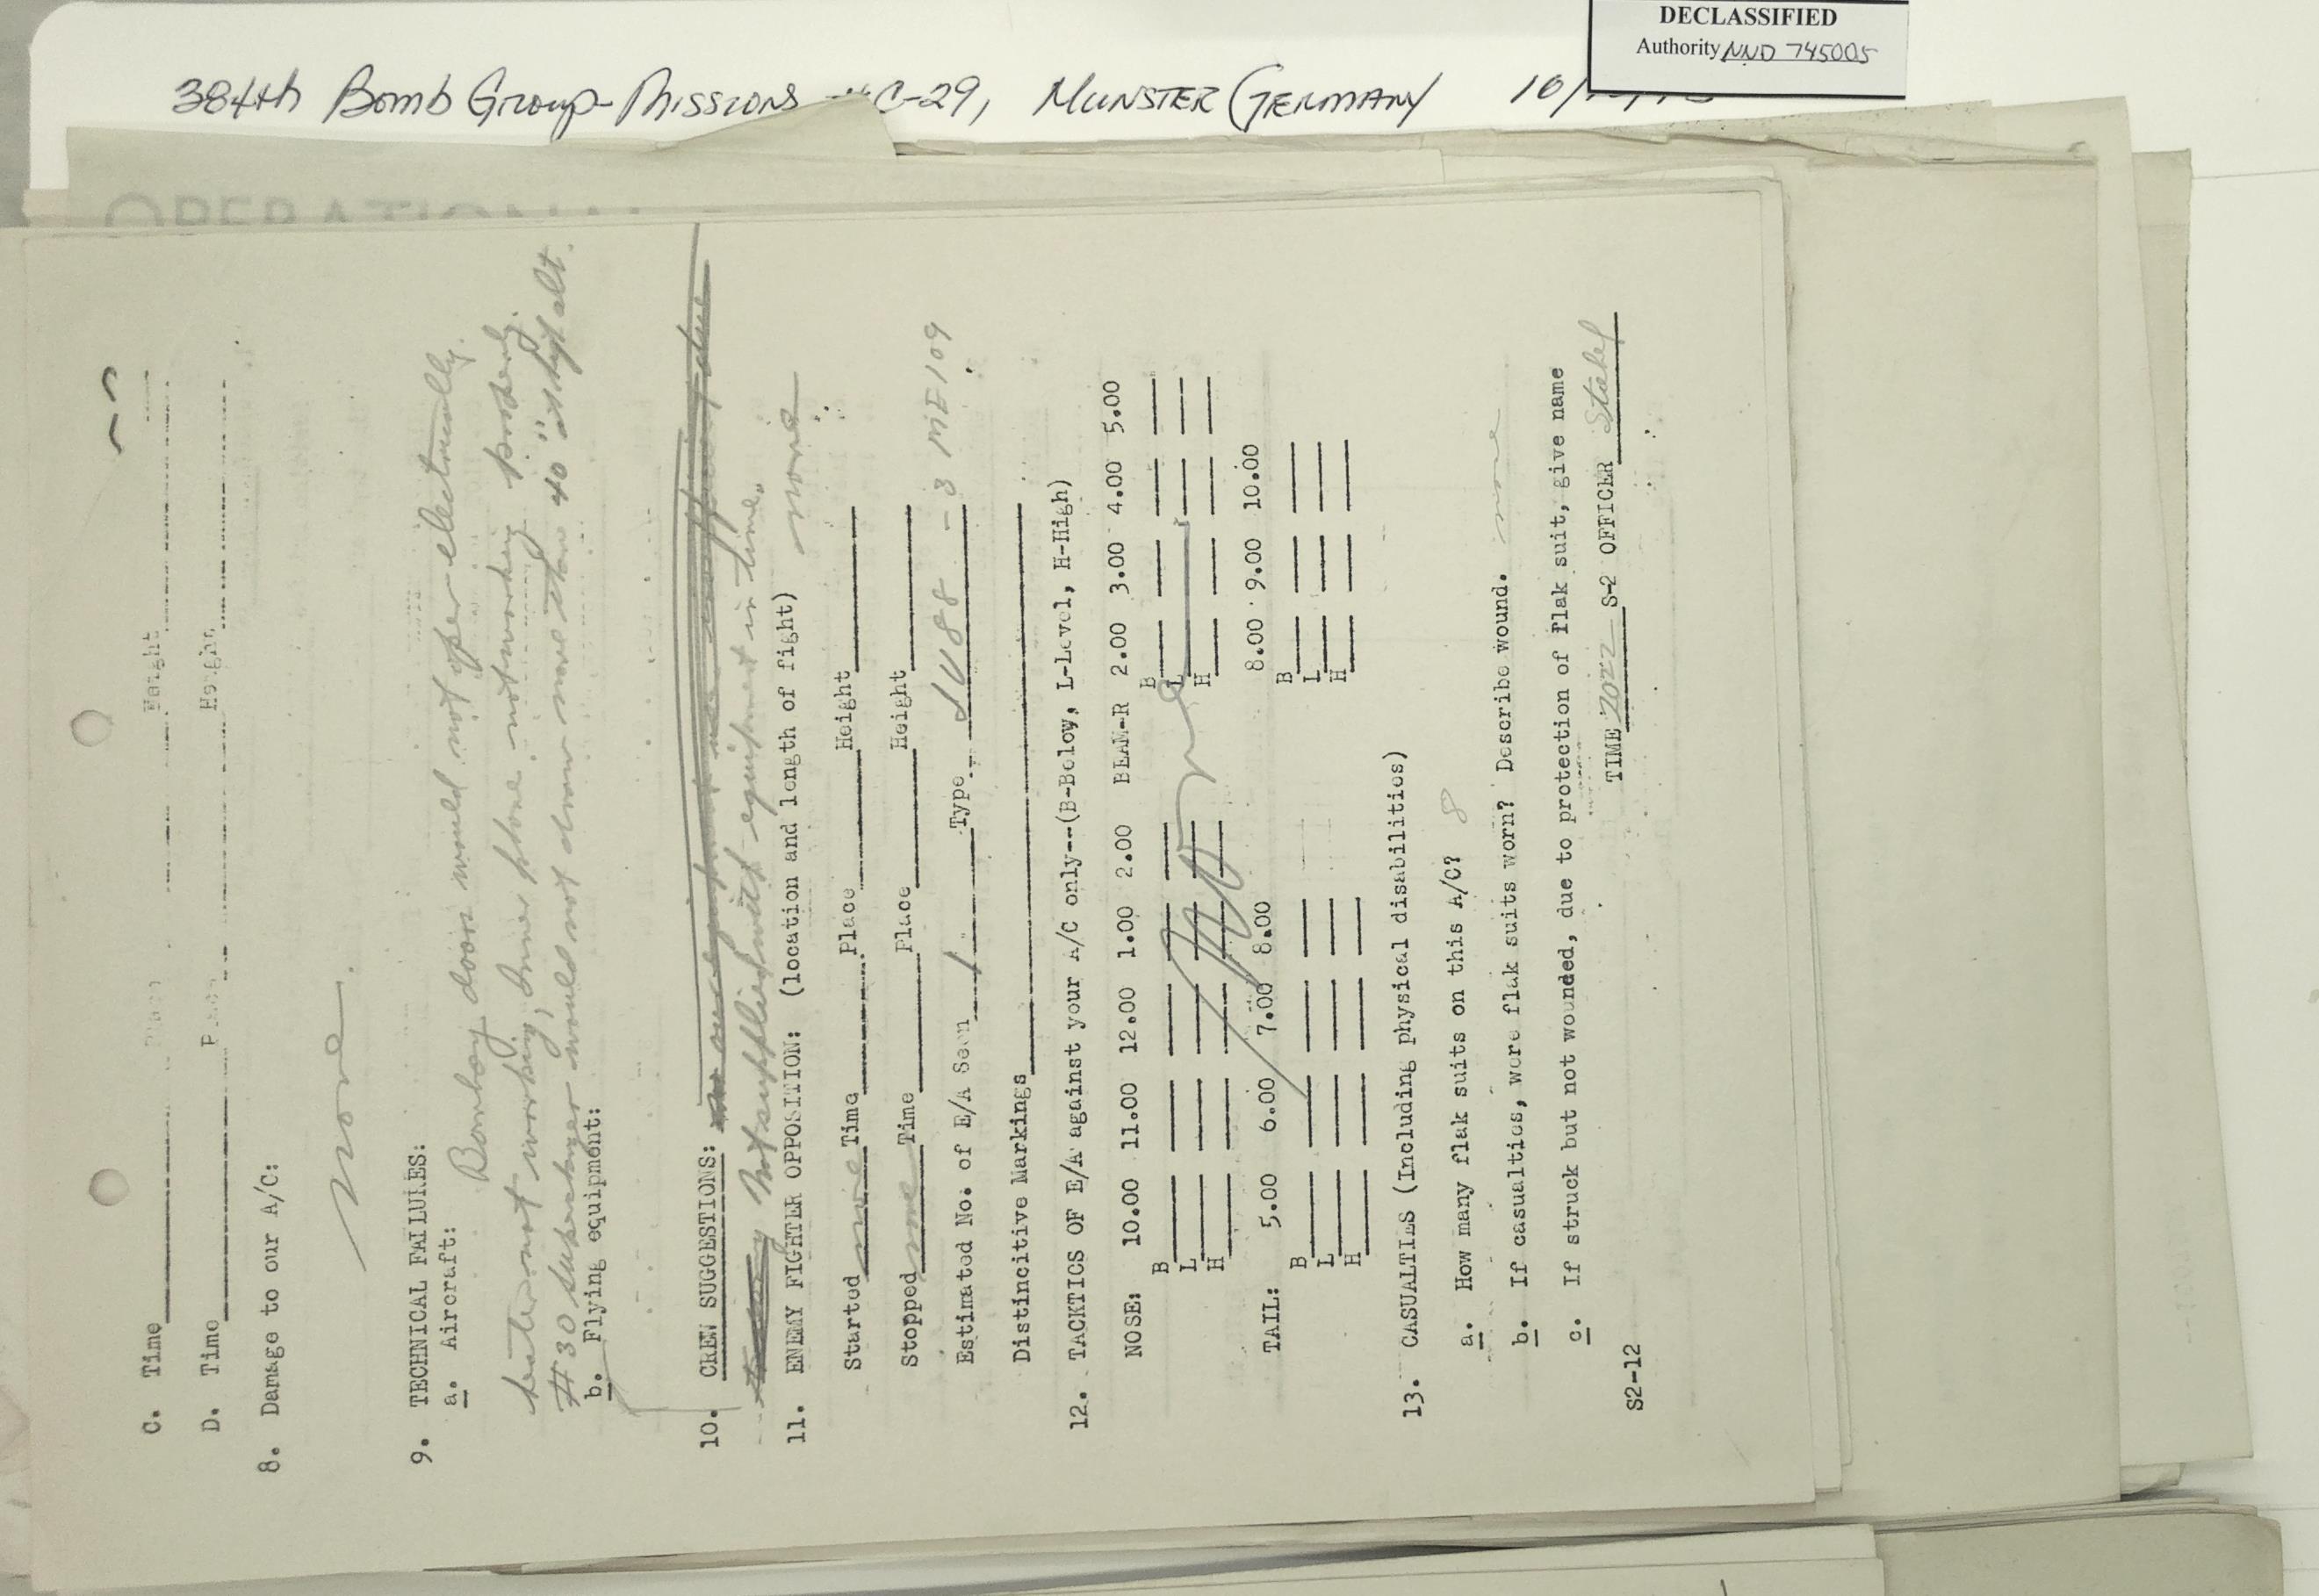 DECLASSIFIED
Authority NND 745005
384th Bomb Group - Missions C-29, MUNSTER GERMANY 10/
OPERATIONAL
C. Time Place Height
D. Time Place Height
8. Damage to our A/C:
None.
9. TECHNICAL FAILURES:
a. Aircraft: Bombay doors would not oper electrically.
heater not working, Inner phone not working properly.
#3 Supercharger would not draw more than 40" at high alt.
b. Flying equipment:
10. CREW SUGGESTIONS:
Not supplied with equipment in time.
11. ENEMY FIGHTER OPPOSITION: (location and length of fight) none
Started none Time Place Height
Stopped none Time Place Height
Estimated No. of E/A Seen 1 Type JU 88 - 3 ME 109
Distincitive Markings
12. TACKTICS OF E/A against your A/C only--(B-Below, L-Level, H-High)
NOSE: 10.00 11.00 12.00 1.00 2.00 BEAM-R 2.00 3.00 4.00 5.00
B B
L L
H H
TAIL: 5.00 6.00 7.00 8.00 8.00 9.00 10.00
B B
L L
H H
13. CASUALTIES (Including physical disabilities)
a. How many flak suits on this A/C? 8
b. If casualties, were flak suits worn? Describe wound. none
c. If struck but not wounded, due to protection of flak suit, give name
TIME 2022 S-2 OFFICER
S2-12